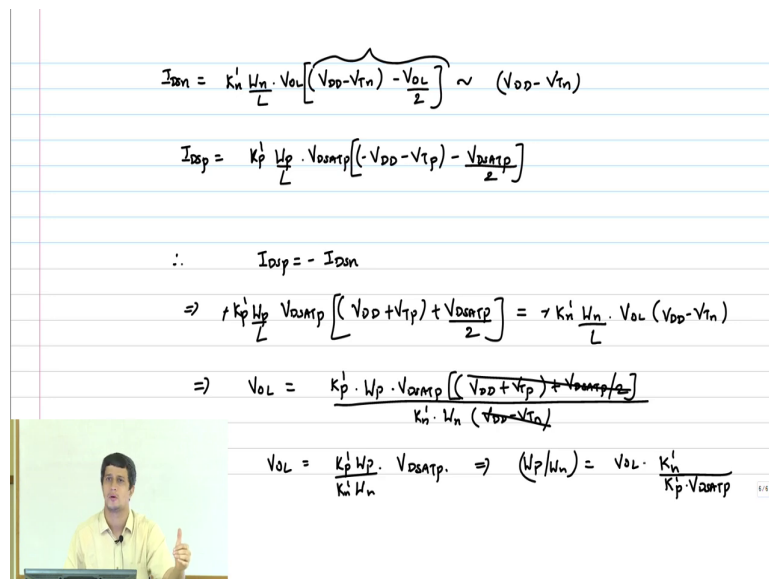 I_DSn = K'_n W_n/L · V_OL [(V_DD - V_Tn) - V_OL/2] ~ (V_DD - V_Tn)
I_DSp = K'_p W_p/L · V_DSATp [(-V_DD - V_Tp) - V_DSATp/2]
∴ I_DSp = - I_DSn
⇒ +K'_p W_p/L V_DSATp [(V_DD + V_Tp) + V_DSATp/2] = +K'_n W_n/L · V_OL (V_DD - V_Tn)
⇒ V_OL = K'_p · W_p · V_DSATp [(V_DD + V_Tp) + V_DSATp/2] / K'_n · W_n (V_DD - V_Tn)
V_OL = K'_p W_p / K'_n W_n · V_DSATp. ⇒ (W_p/W_n) = V_OL · K'_n / K'_p · V_DSATp
6/6